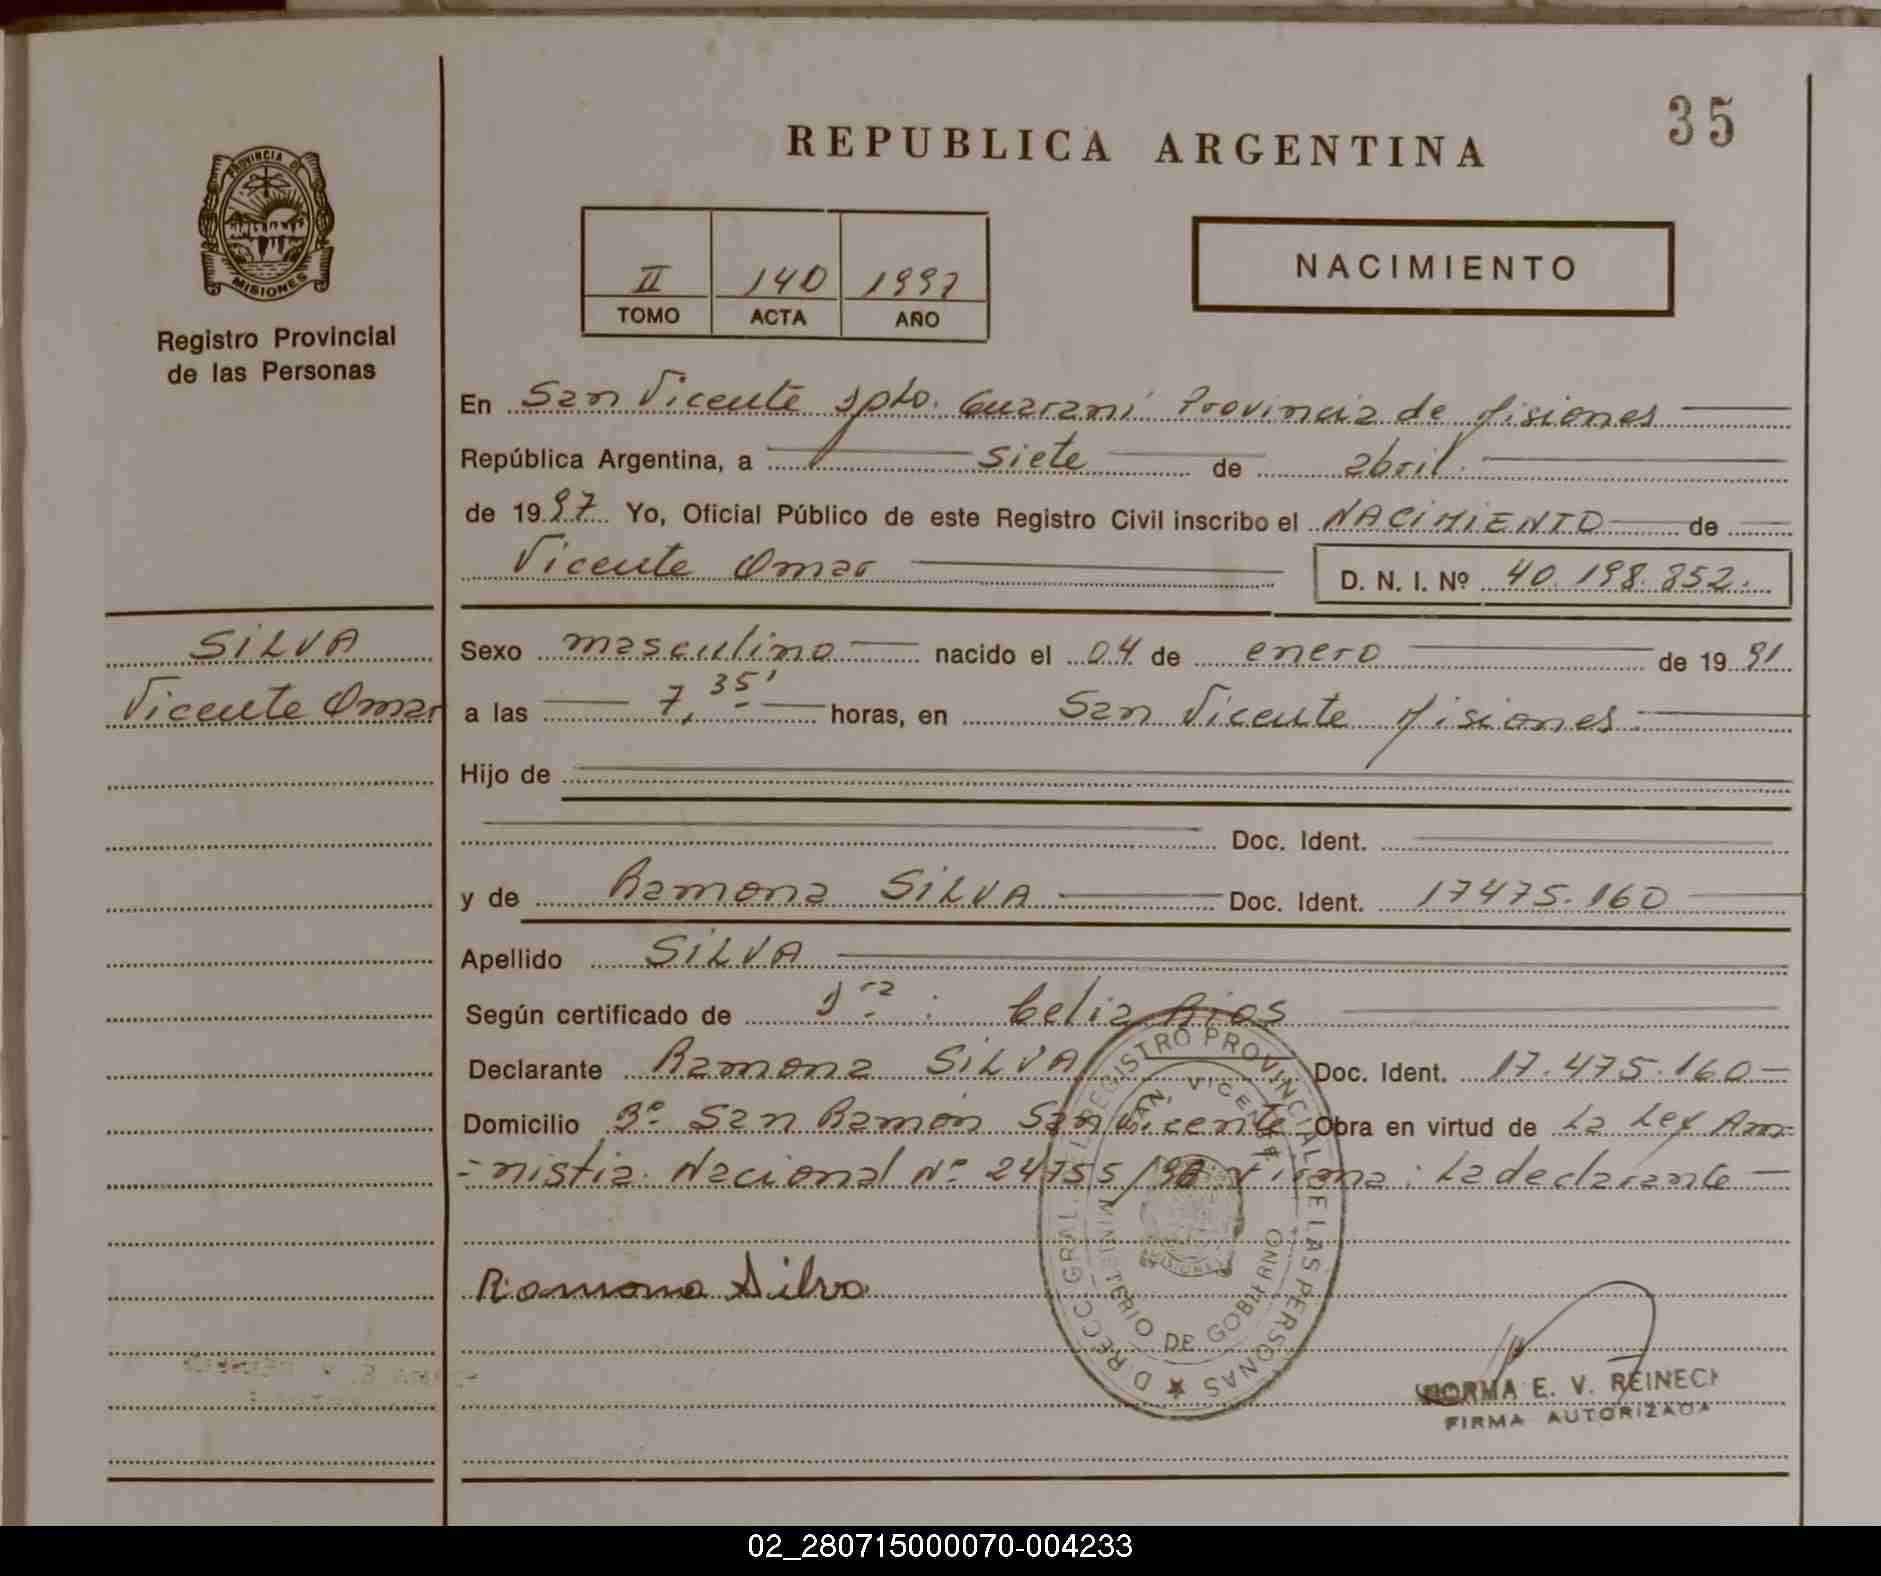 35
REPUBLICA ARGENTINA
PROVINCIA DE MISIONES
Registro Provincial
de las Personas
II 140 1997
TOMO ACTA AÑO
NACIMIENTO
En San Vicente dpto. Guaraní Provincia de Misiones
República Argentina, a siete de abril
de 1997 Yo, Oficial Público de este Registro Civil inscribo el NACIMIENTO de
Vicente Omar D. N. I. Nº 40.198.852.
SILVA
Vicente Omar
Sexo masculino nacido el 04 de enero de 1991
a las 7,35' horas, en San Vicente Misiones
Hijo de
Doc. Ident.
y de Ramona SILVA Doc. Ident. 17475.160
Apellido SILVA
Según certificado de Dra : Celia Rios
Declarante Ramona SILVA Doc. Ident. 17.475.160
Domicilio Bº San Ramón San Vicente Obra en virtud de La Ley Am=
=nistia Nacional Nº 24755/96 Firma: La declarante
Ramona Silva
DIRECC. GRAL. DEL REGISTRO PROVINCIAL DE LAS PERSONAS
SAN VICENTE
MINISTERIO DE GOBIERNO
MISIONES
NORMA E. V. REINECK
FIRMA AUTORIZADA
02_280715000070-004233